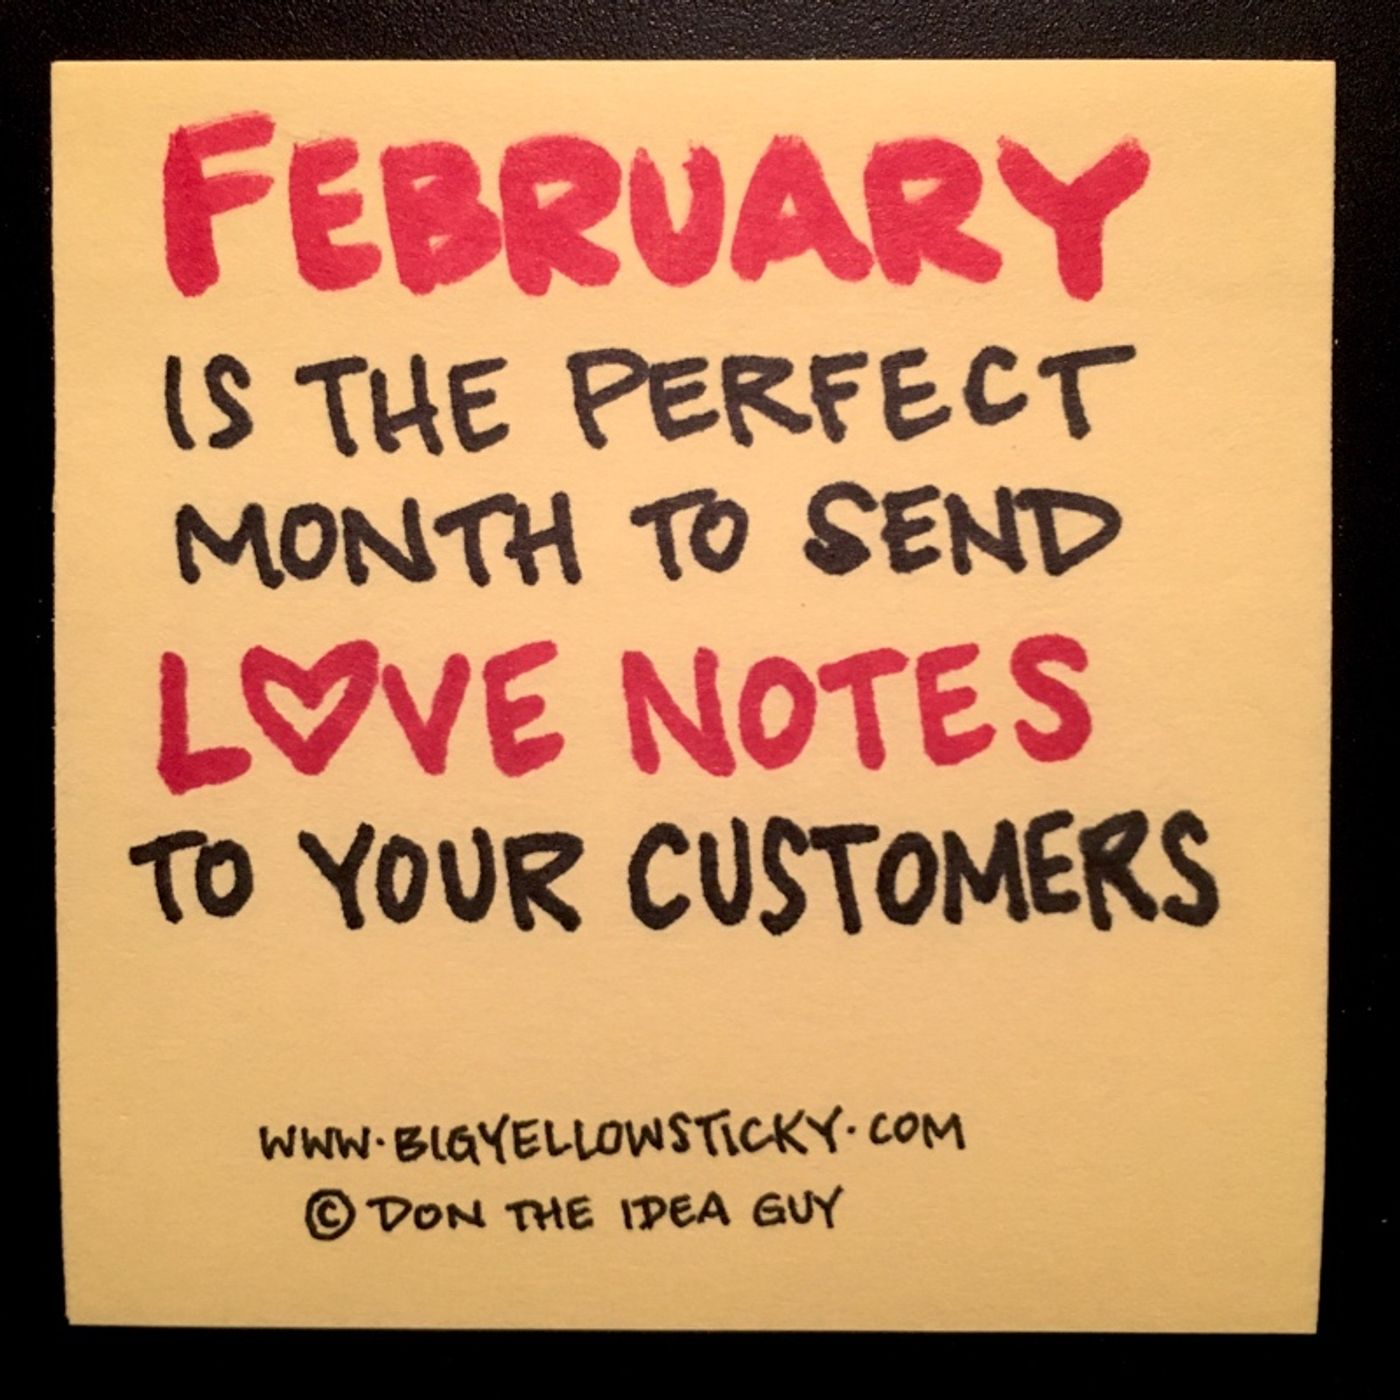 FEBRUARY
IS THE PERFECT
MONTH TO SEND
L♡VE NOTES
TO YOUR CUSTOMERS
WWW.BIGYELLOWSTICKY.COM
© DON THE IDEA GUY